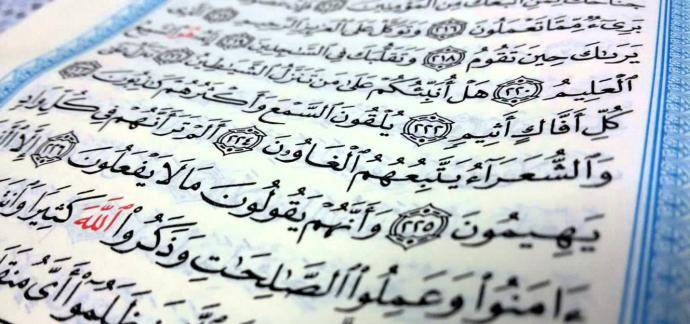 بَرِىٓءٌ مِّمَّا تَعْمَلُونَ ٢١٦ وَتَوَكَّلْ عَلَى ٱلْعَزِيزِ
يَرَىٰكَ حِينَ تَقُومُ ٢١٨ وَتَقَلُّبَكَ فِي ٱلسَّٰجِدِينَ ٢١٩
ٱلْعَلِيمُ ٢٢٠ هَلْ أُنَبِّئُكُمْ عَلَىٰ مَن تَنَزَّلُ ٱلشَّيَٰطِينُ
كُلِّ أَفَّاكٍ أَثِيمٍ ٢٢٢ يُلْقُونَ ٱلسَّمْعَ وَأَكْثَرُهُمْ كَٰذِبُونَ
وَٱلشُّعَرَآءُ يَتَّبِعُهُمُ ٱلْغَاوُۥنَ ٢٢٤ أَلَمْ تَرَ أَنَّهُمْ فِي كُلِّ وَادٍ
يَهِيمُونَ ٢٢٥ وَأَنَّهُمْ يَقُولُونَ مَا لَا يَفْعَلُونَ ٢٢٦ إِلَّا
ءَامَنُوا۟ وَعَمِلُوا۟ ٱلصَّٰلِحَٰتِ وَذَكَرُوا۟ ٱللَّهَ كَثِيرًا
ظَلَمُوٓا۟ أَيَّ